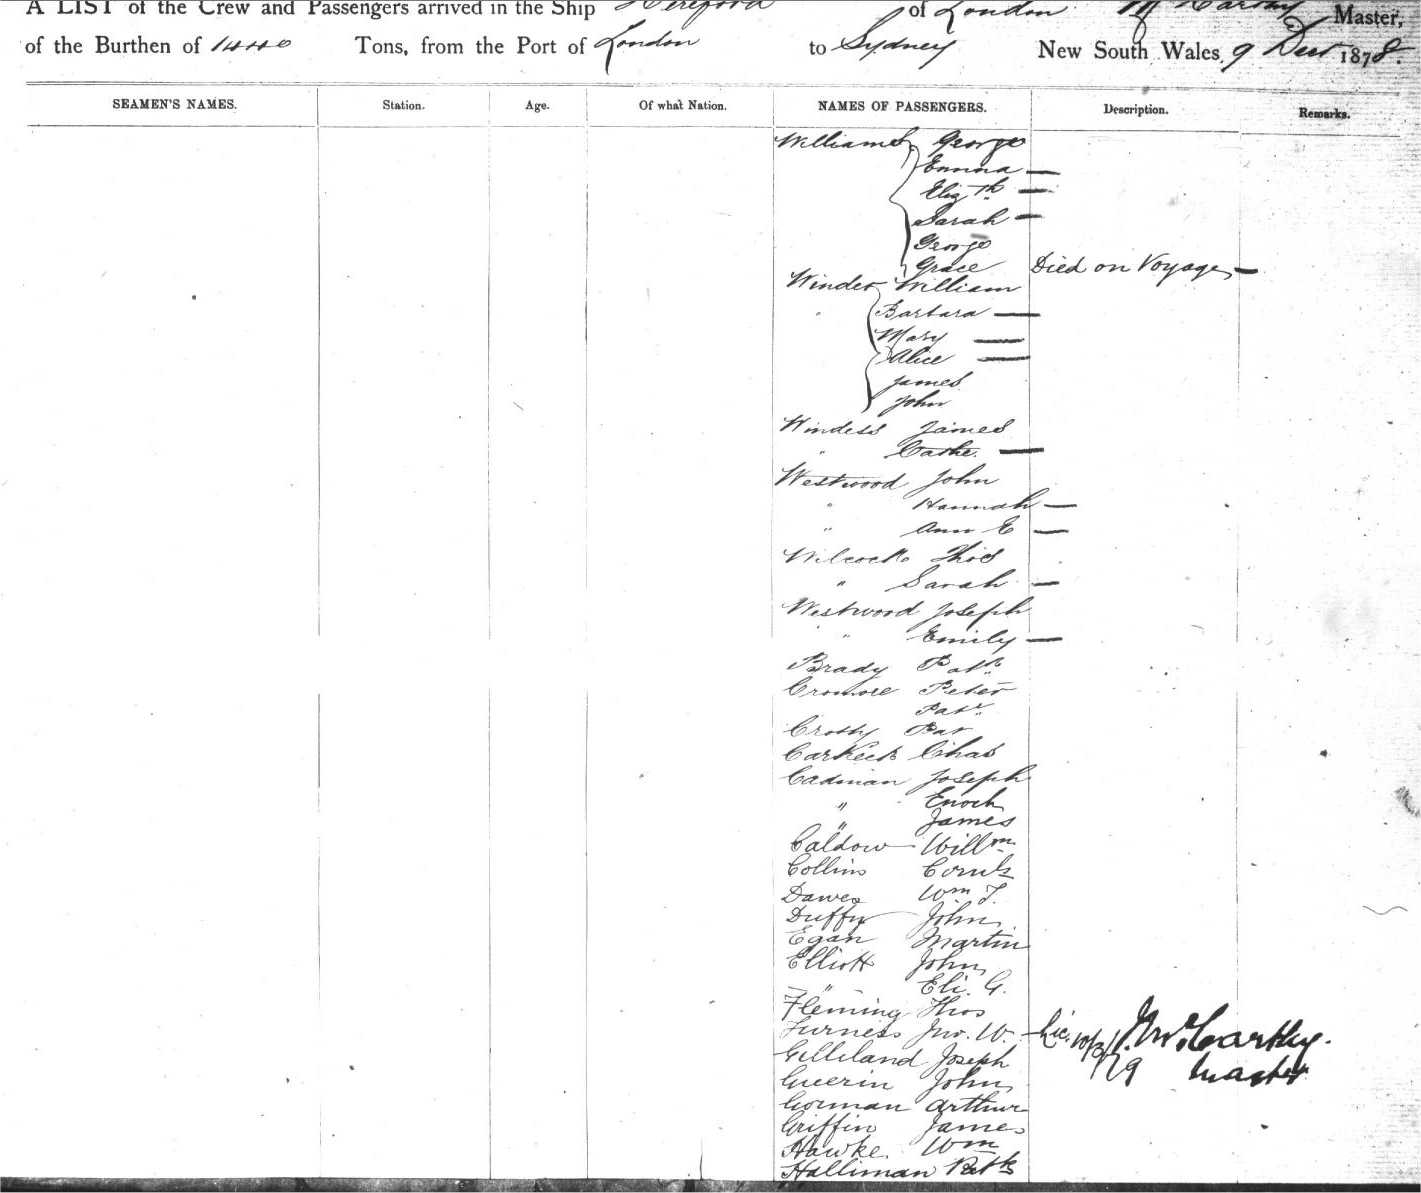 A LIST of the Crew and Passengers arrived in the Ship Hereford of London McCarthy Master,
of the Burthen of Tons, from the Port of London to Sydney New South Wales, 9 Decr 1878.
SEAMEN'S NAMES. Station. Age. Of what Nation. NAMES OF PASSENGERS. Description. Remarks.
Williams George
Emma —
Elizth —
Sarah —
George
Grace Died on Voyage —
Winder William
" Barbara —
Mary —
Alice —
James
John
Windess James
" Cathe. —
Westwood John
" Hannah —
" Ann E —
Wilcock Thos
" Sarah —
Westwood Joseph
" Emily —
Brady Patk
Cromore Peter
Patk
Crosby Pat
Carkeek Chas
Cadman Joseph
" Enoch
" James
Caldow Willm
Collins Corns
Dawes Wm J.
Duffy John
Egan Martin
Elliott John
" Eli. G.
Fleming Thos
Furness Jno. W.
Gilliland Joseph
Guerin John
Gorman Arthur
Griffin James
Hawke Wm
Halliman Patk
McCarthy.
Master